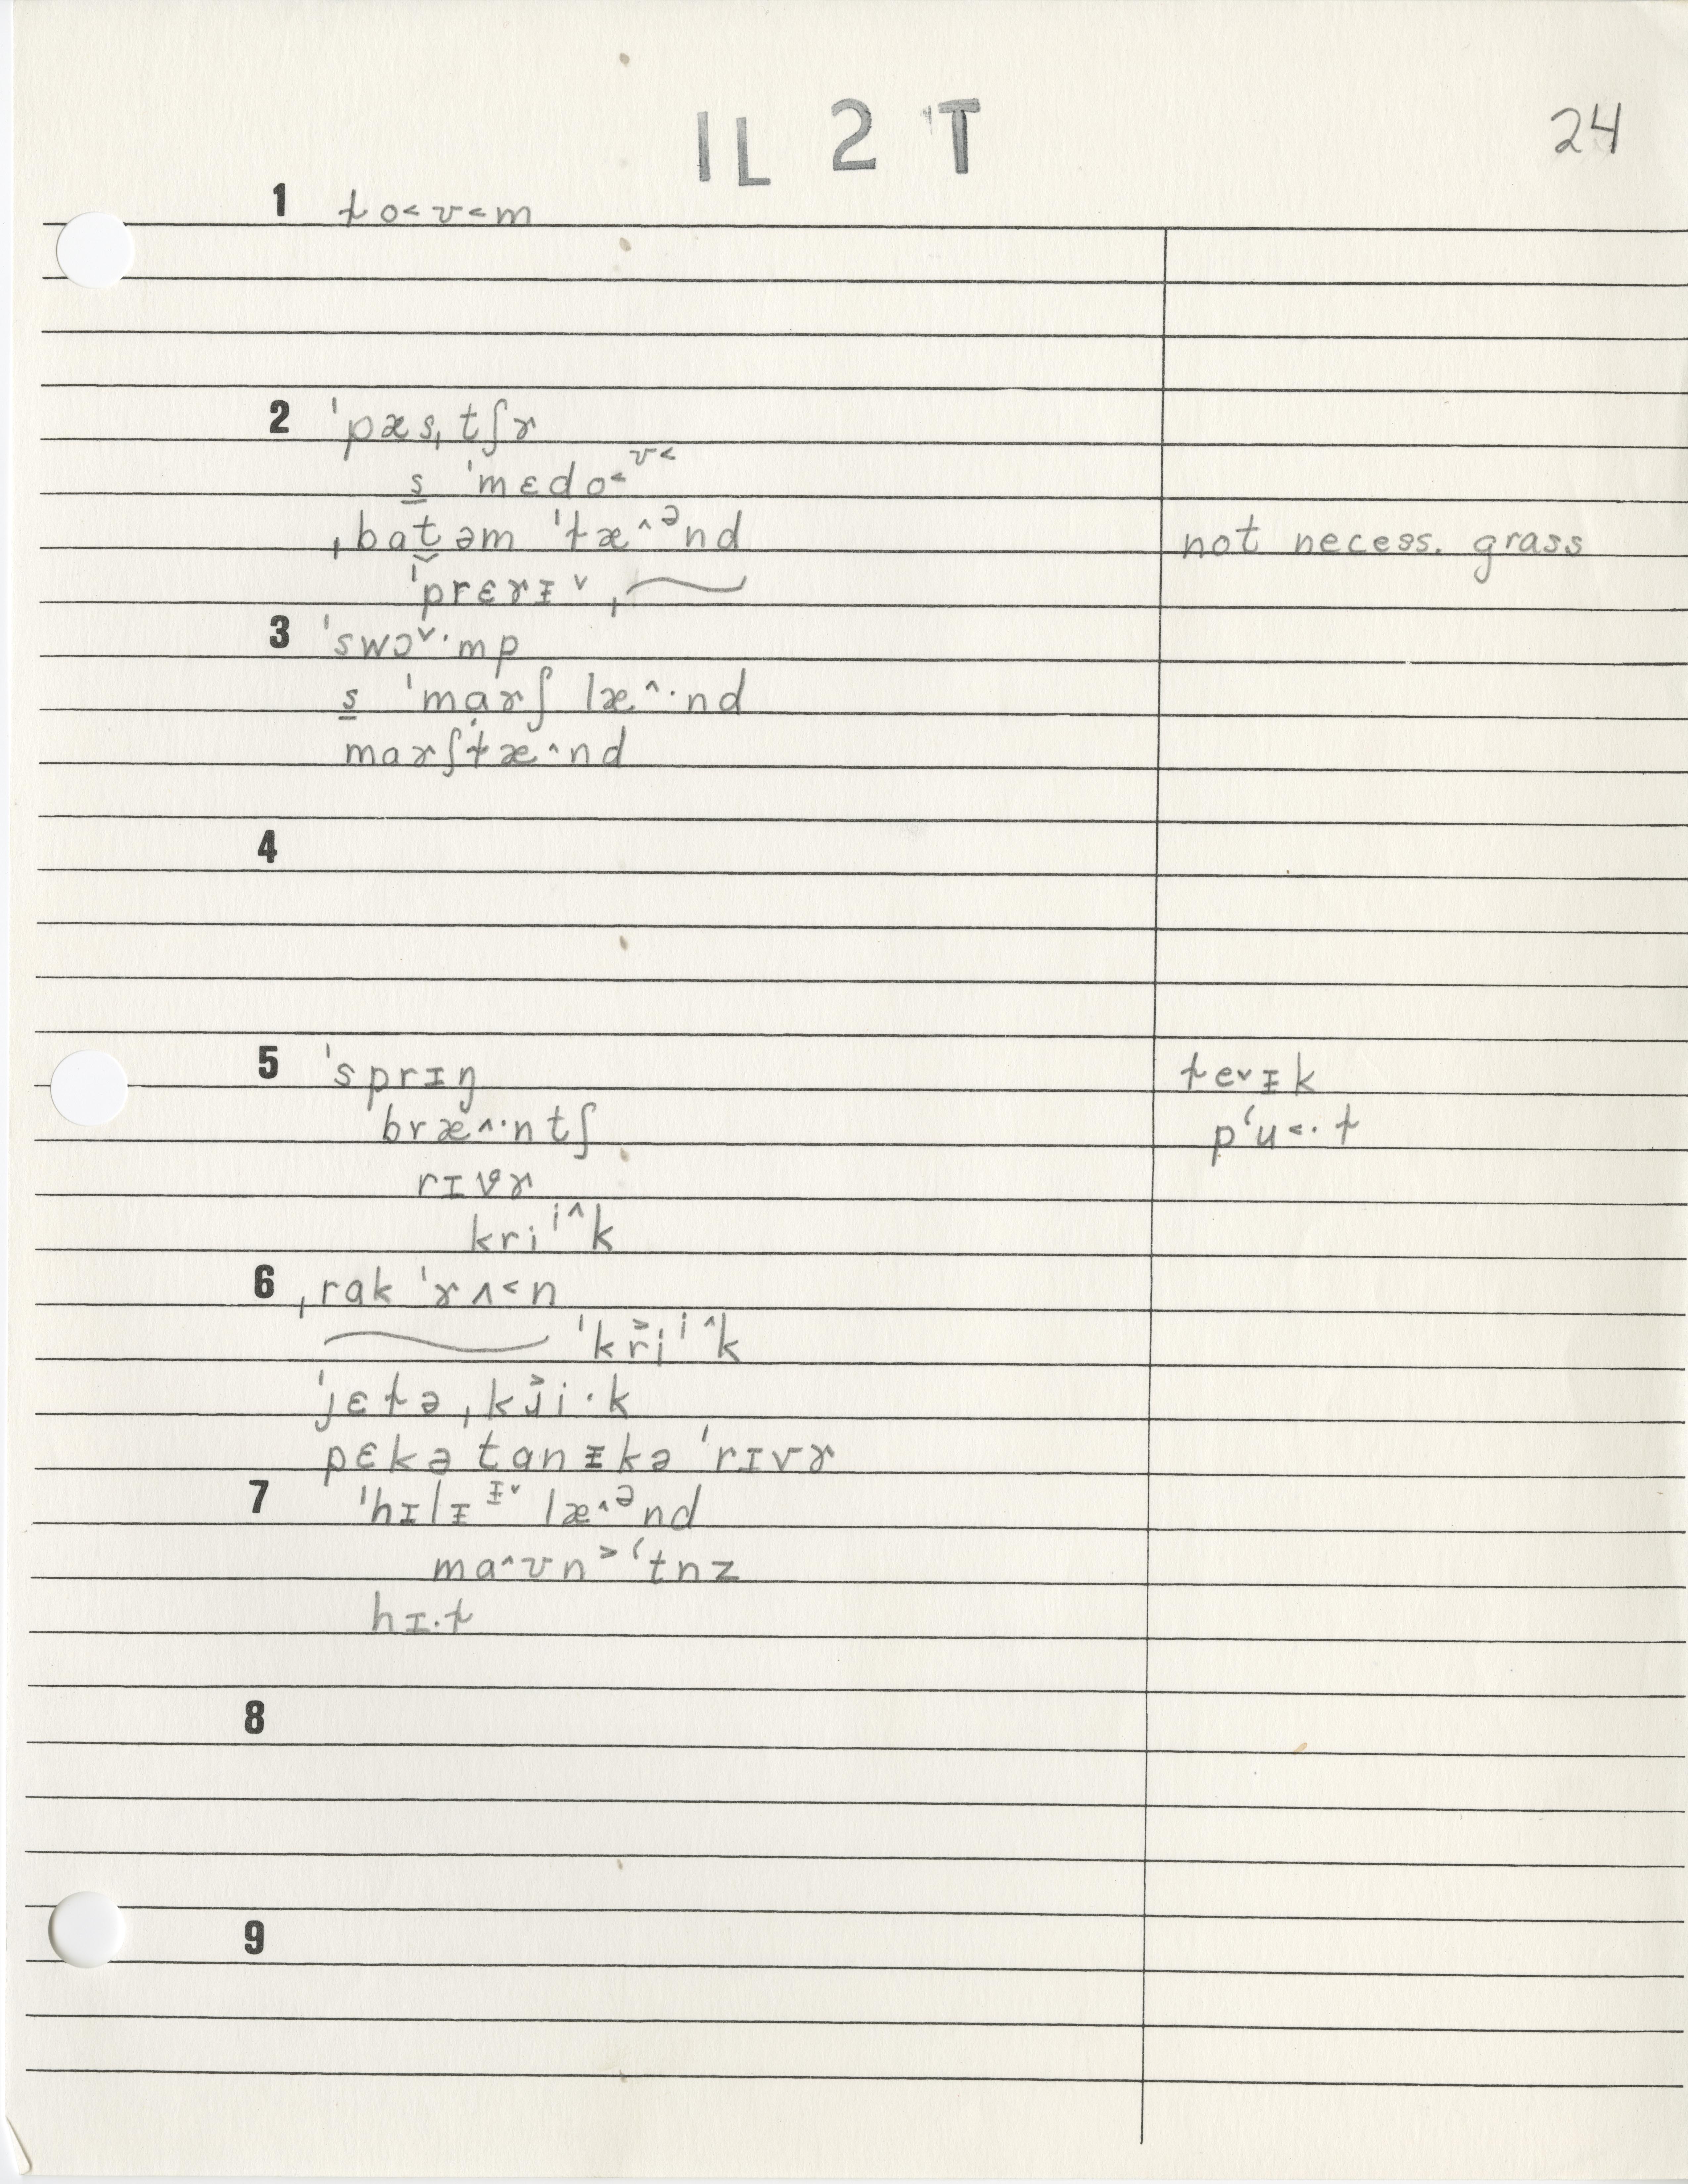 IL 2 T
24
1 ɫo˂ʊ˂m
2 ˈpæsˌtʃɚ
s̲ ˈmɛdo˂ʊ˂
ˌbat̬əm ˈɫæ˄ᵊnd not necess. grass
ˈprɛrɪ˅ ˌ⁓
3 ˈswɔ˅·mp
s̲ ˈmaɚʃ læ˄·nd
maɚʃɫæ˄nd
4
5 ˈsprɪŋ ɫe˅ɪk
bræ˄·ntʃ pʻu˂·ɫ
rɪvɚ
kriⁱ˄k
6 ˌrak ˈrʌ˂n
⁓ ˈkr̥iⁱ˄k
ˈjɛɫə ˌkɹ̥i·k
pɛkətanᵻkə ˈrɪvɚ
7 ˈhɪlᵻᵻ˅ læ˄ᵊnd
ma˄ʊn˃ʻtnz
hɪ·ɫ
8
9